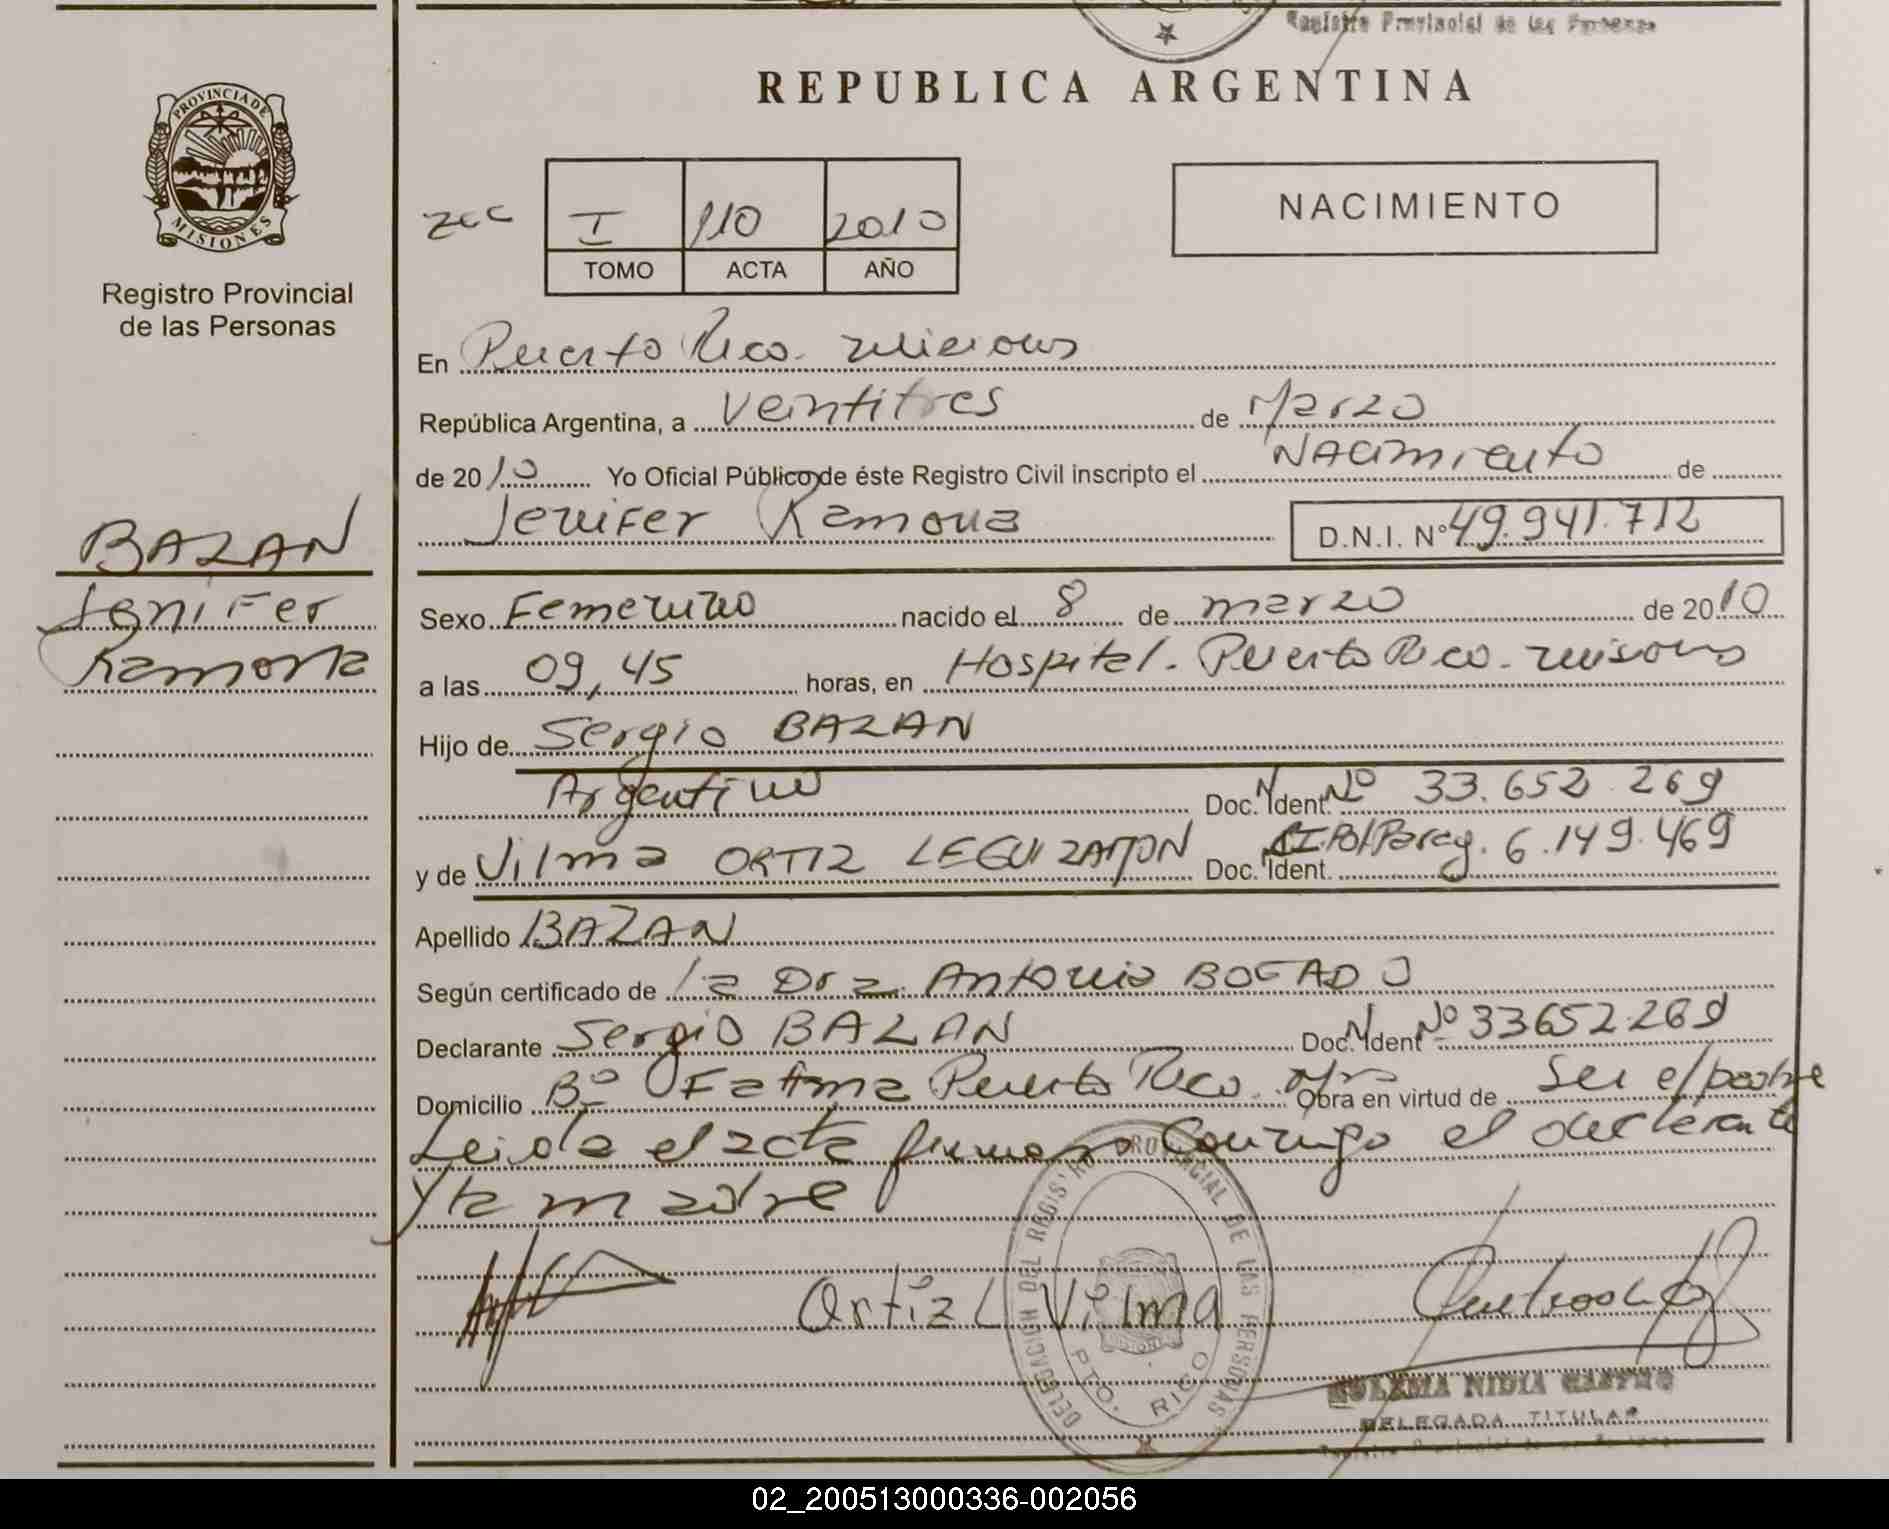 Registro Provincial de las Personas
REPUBLICA ARGENTINA
PROVINCIA DE
MISIONES
Registro Provincial
de las Personas
I 110 2010
TOMO ACTA AÑO
NACIMIENTO
En Puerto Rico. Misiones
República Argentina, a veintitres de Marzo
de 2010 Yo Oficial Público de éste Registro Civil inscripto el NAcimiento de
Jenifer Ramona D.N.I. Nº 49.941.712
BAZAN
Jenifer
Ramona
Sexo Femenino nacido el 8 de marzo de 2010
a las 09,45 horas, en Hospital. Puerto Rico. Misiones
Hijo de Sergio BAZAN
Argentino Doc. Ident. Nº 33.652.269
y de Vilma ORTIZ LEGUIZAMON Doc. Ident. CI.Pol.Parag. 6.149.469
Apellido BAZAN
Según certificado de la Dra. Antonia BOGADO
Declarante Sergio BAZAN Doc. Ident Nº 33652.269
Domicilio Bº Fatima Puerto Rico. Mnes Obra en virtud de Ser el padre
Leida el acta firman Conmigo el declarante
y la madre
Ortiz L Vilma
DELEGACION DEL REGISTRO PROVINCIAL DE LAS PERSONAS
PTO. RICO
ZULEMA NIDIA CASTRO
DELEGADA TITULAR
Registro Provincial de las Personas
02_200513000336-002056